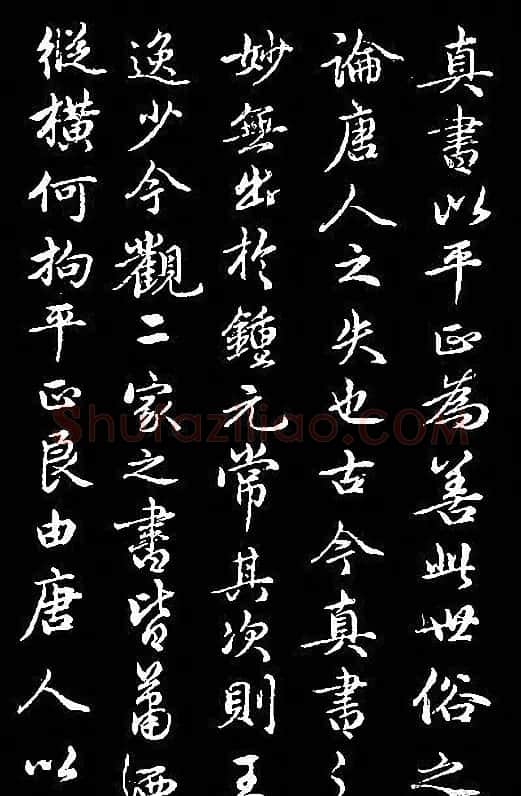 真書以平正為善此世俗之
論唐人之失也古今真書之
妙無出於鍾元常其次則王
逸少今觀二家之書皆蕭洒
縱橫何拘平正良由唐人以
shufaziliao.com